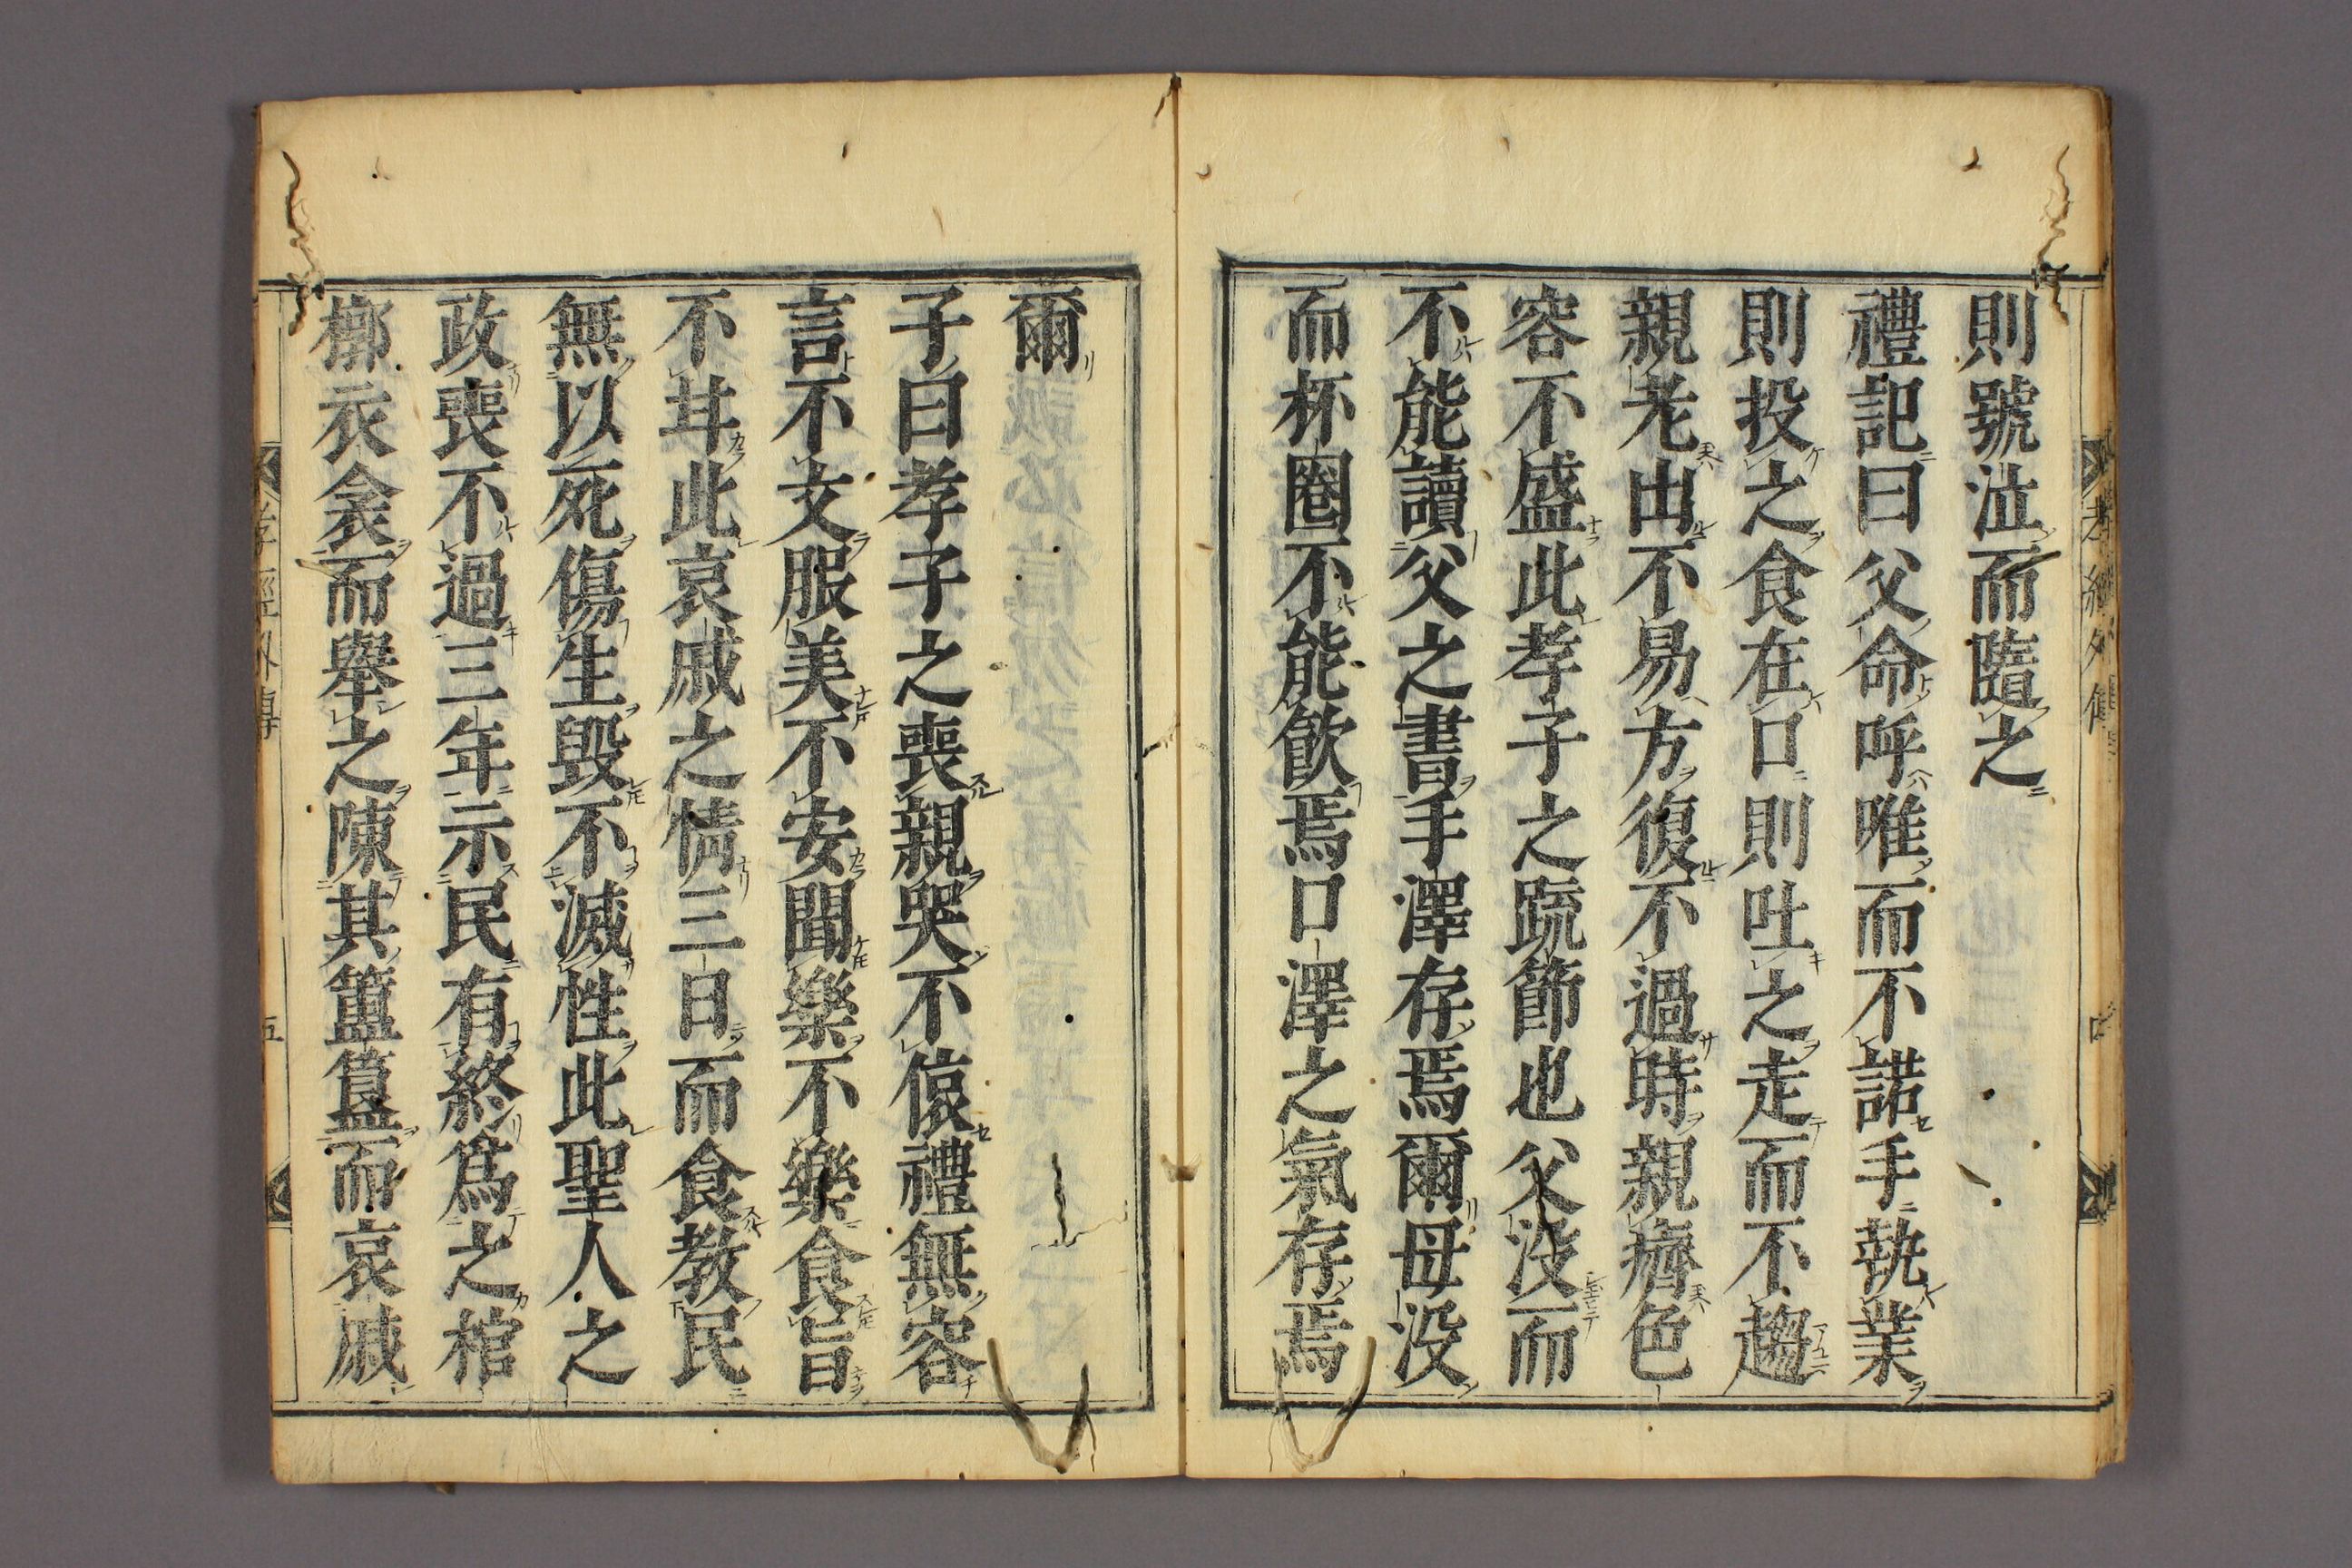 則號泣而隨之
禮記曰父命呼唯而不諾手執業
則投之食在口則吐之走而不趨
親老出不易方復不過時親癠色
容不盛此孝子之疏節也父没而
不能讀父之書手澤存焉爾母没
而杯圈不能飲焉口澤之氣存焉
爾
子曰孝子之喪親哭不偯禮無容
言不文服美不安聞樂不樂食旨
不甘此哀戚之情三日而食教民
無以死傷生毀不滅性此聖人之
政喪不過三年示民有終爲之棺
槨衣衾而舉之陳其簠簋而哀戚
孝經外傳
五